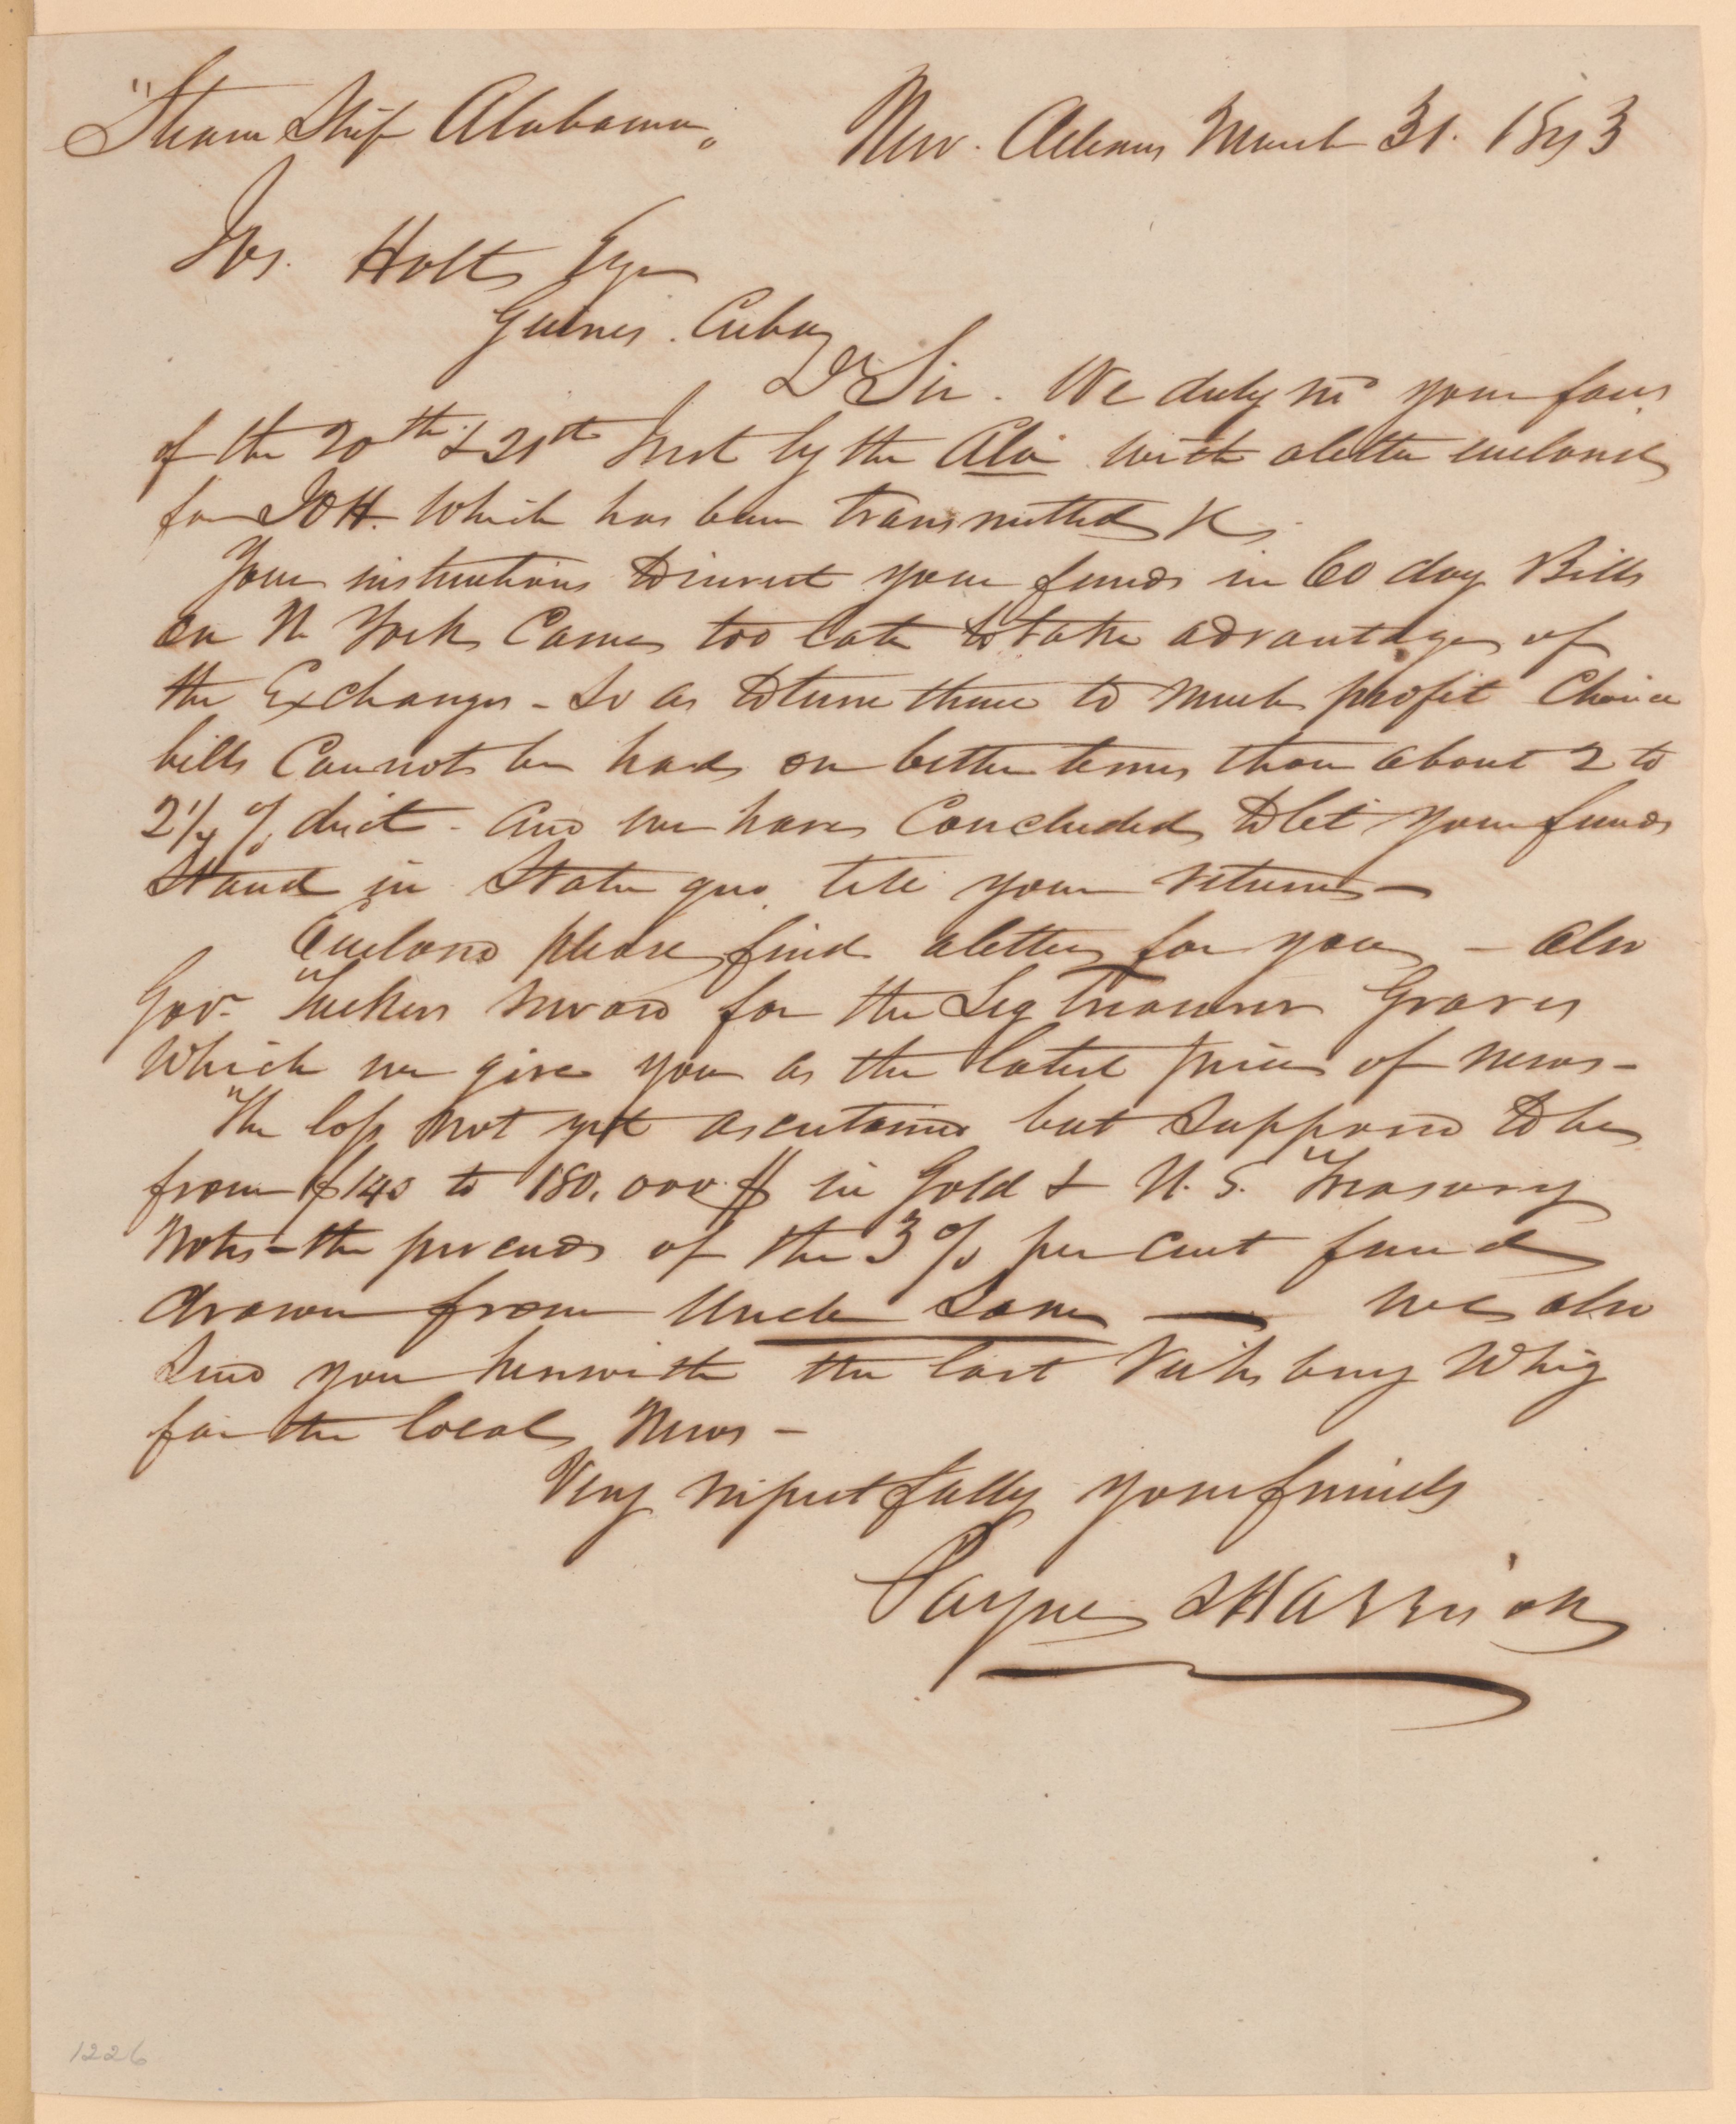 "Steam Ship Alabama"
New Orleans March 31. 1843
Jos. Holt Esqr
Guines. Cuba
Dr Sir. We duly recd your favrs
of the 20th & 21st Inst by the Ala with a letter enclosed
for JWH. Which has been transmitted &c
Your instructions to invest your funds in 60 day Bills
on N York Came too late to take advantage of
the Exchange - So as to turn them to much profit Choice
bills Cannot be had on better terms than about 2 to
2 1/4 % disct - and we have Concluded to let your funds
Stand in State quo till your return -
Enclosed please find a letter for you - also
Govr Tuckers reward for the Leg Treasurer Graves
Which we give you as the latest piece of news -
The loss not yet ascertained but supposed to be
from $140 to 180.000 $ in Gold & U. S. Treasury
Notes - the proceeds of the 3 % per cent fund
drawn from Uncle Sam - We also
Send you herewith the last Vicksburg Whig
for the local News -
Very respectfully your friends
Payne & Harrison
1226